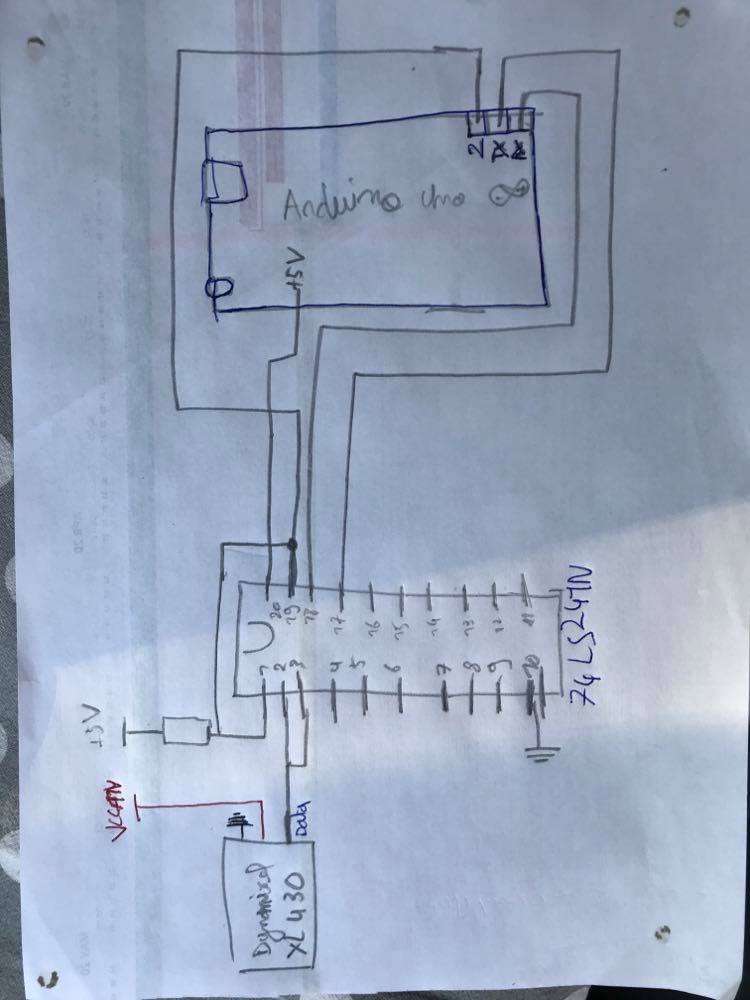 2
TX
RX
Arduino Uno
+5V
20
19
18
17
16
15
14
13
12
11
1
2
3
4
5
6
7
8
9
10
74LS241N
+5V
Data
Dynamixel
XL430